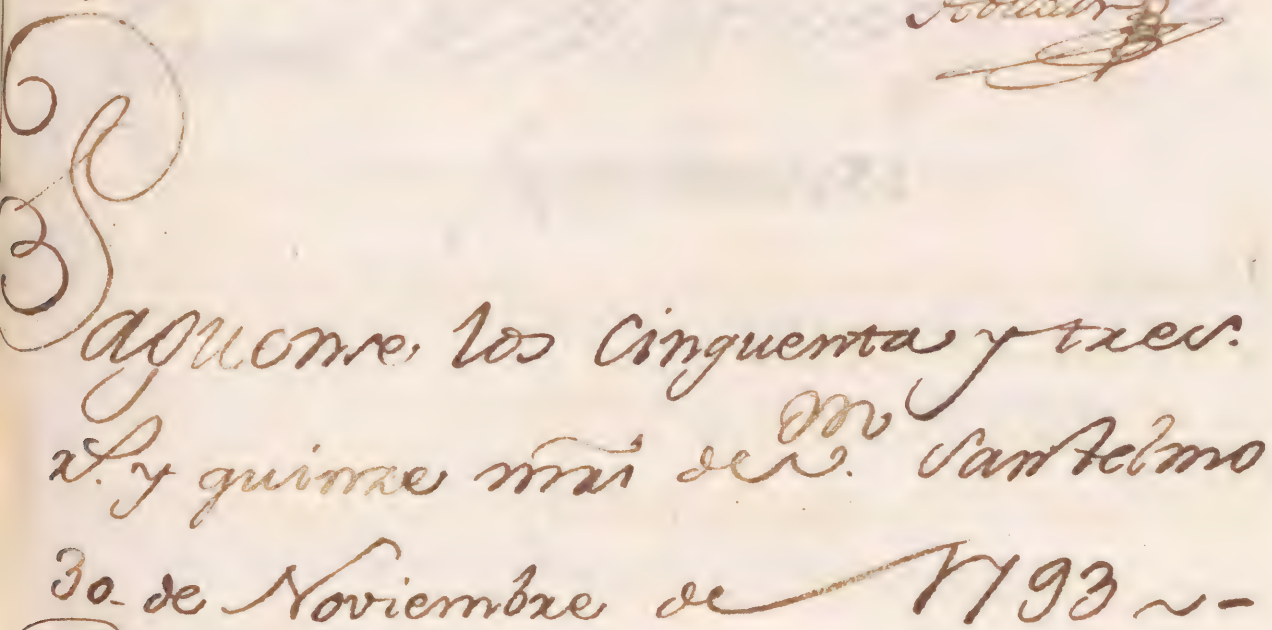 Paguense los Cinquenta y tres.
rs. y quinze mrs. de vn. Santelmo
30 de Noviembre de 1793 ~-